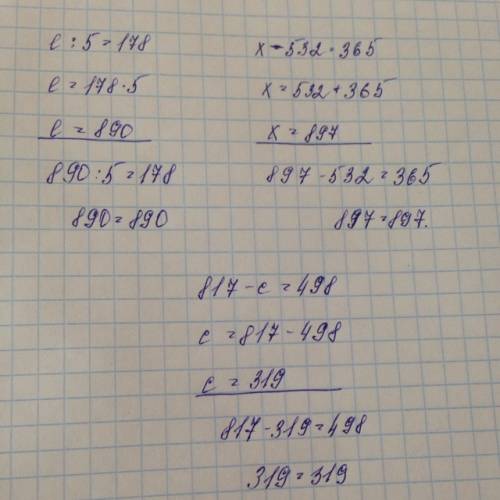 с : 5 = 178
с = 178 · 5
с = 890
890 : 5 = 178
890 = 890
х - 532 = 365
х = 532 + 365
х = 897
897 - 532 = 365
897 = 897.
817 - с = 498
с = 817 - 498
с = 319
817 - 319 = 498
319 = 319